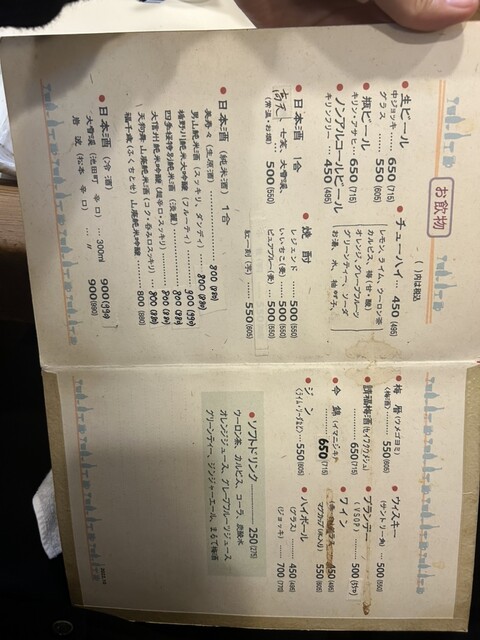 お飲物
( )内は税込
● 生ビール
中ジョッキ 650 (715)
グラス 550 (605)
● 瓶ビール
キリン・アサヒ 650 (715)
● ノンアルコールビール
キリンフリー 450 (495)
● チューハイ 450 (495)
レモン、ライム、ウーロン茶
カルピス、梅(甘・酸)
オレンジ、グレープフルーツ
グリーンティー、ソーダ
お湯、水、
● 日本酒 1合
七笑、大雪渓、
(常温・お燗) 500 (550)
● 焼酎
レジェンド 500 (550)
いいちこ(麦) 500 (550)
ピュアブルー(麦) 500 (550)
550 (605)
● 日本酒 (純米酒) 1合
(生原酒) 800 (880)
男山純米酒 (スッキリ、ダンディ) 800 (880)
純米大吟醸 (フルーティ) 900 (990)
四季桜特別純米酒 (淡麗) 800 (880)
大信州純米吟醸 (超辛口・スッキリ) 800 (880)
天狗舞 山廃純米酒 (コク・呑み口スッキリ) 800 (880)
福千歳 (ふくちとせ) 山廃純米吟醸 800 (880)
● 日本酒 (冷酒)
大雪渓 (池田町 辛口) 300ml 900 (990)
岩波 (松本 辛口) 〃 900 (990)
● 梅暦 (ウメゴヨミ)
(梅酒) 550 (605)
● 請福梅酒
650 (715)
● 今錦 (イマニシキ)
650 (715)
● ジン
550 (605)
● ウィスキー
(サントリー角) 500 (550)
● ブランデー
(VSOP) 500 (550)
● ワイン
グラス 450 (495)
550 (605)
● ハイボール
(グラス) 450 (495)
(ジョッキ) 700 (770)
● ソフトドリンク 250 (275)
ウーロン茶、カルピス、コーラ、炭酸水
オレンジジュース、グレープフルーツジュース
グリーンティー、ジンジャーエール、まるで梅酒